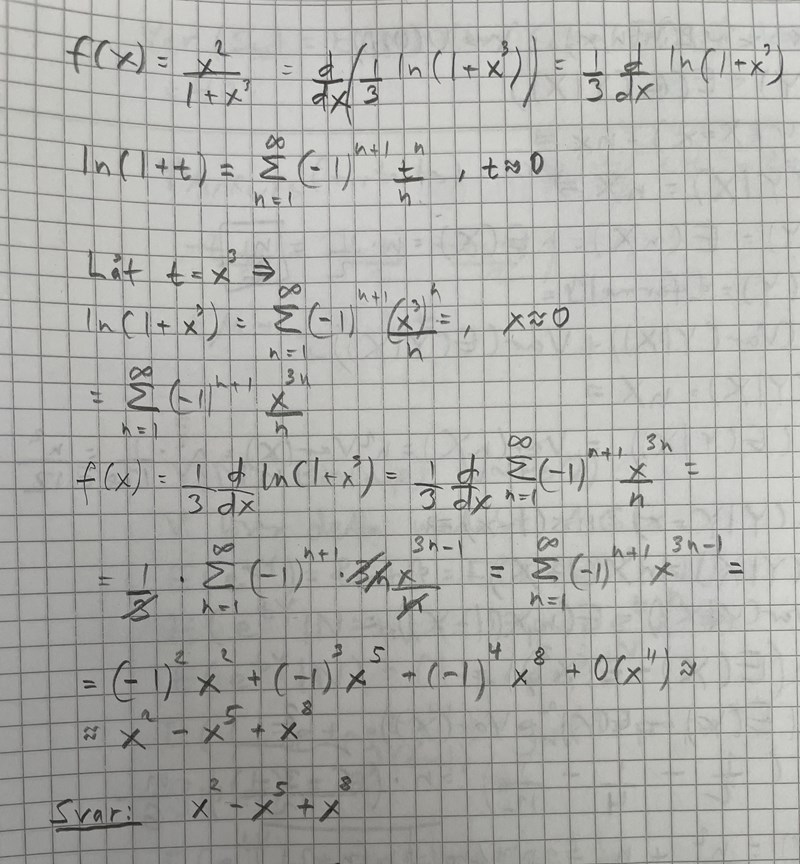 f(x) = x²/(1+x³) = d/dx(1/3 ln(1+x³)) = 1/3 d/dx ln(1+x³)
ln(1+t) = ∑_{n=1}^{∞} (-1)^{n+1} t^n/n , t≈0
Låt t = x³ ⇒
ln(1+x³) = ∑_{n=1}^{∞} (-1)^{n+1} (x³)^n/n =, x≈0
= ∑_{n=1}^{∞} (-1)^{n+1} x^{3n}/n
f(x) = 1/3 d/dx ln(1+x³) = 1/3 d/dx ∑_{n=1}^{∞} (-1)^{n+1} x^{3n}/n =
= 1/3 · ∑_{n=1}^{∞} (-1)^{n+1} · 3n x^{3n-1}/n = ∑_{n=1}^{∞} (-1)^{n+1} x^{3n-1} =
= (-1)² x² + (-1)³ x⁵ + (-1)⁴ x⁸ + O(x¹¹) ≈
≈ x² - x⁵ + x⁸
Svar: x² - x⁵ + x⁸